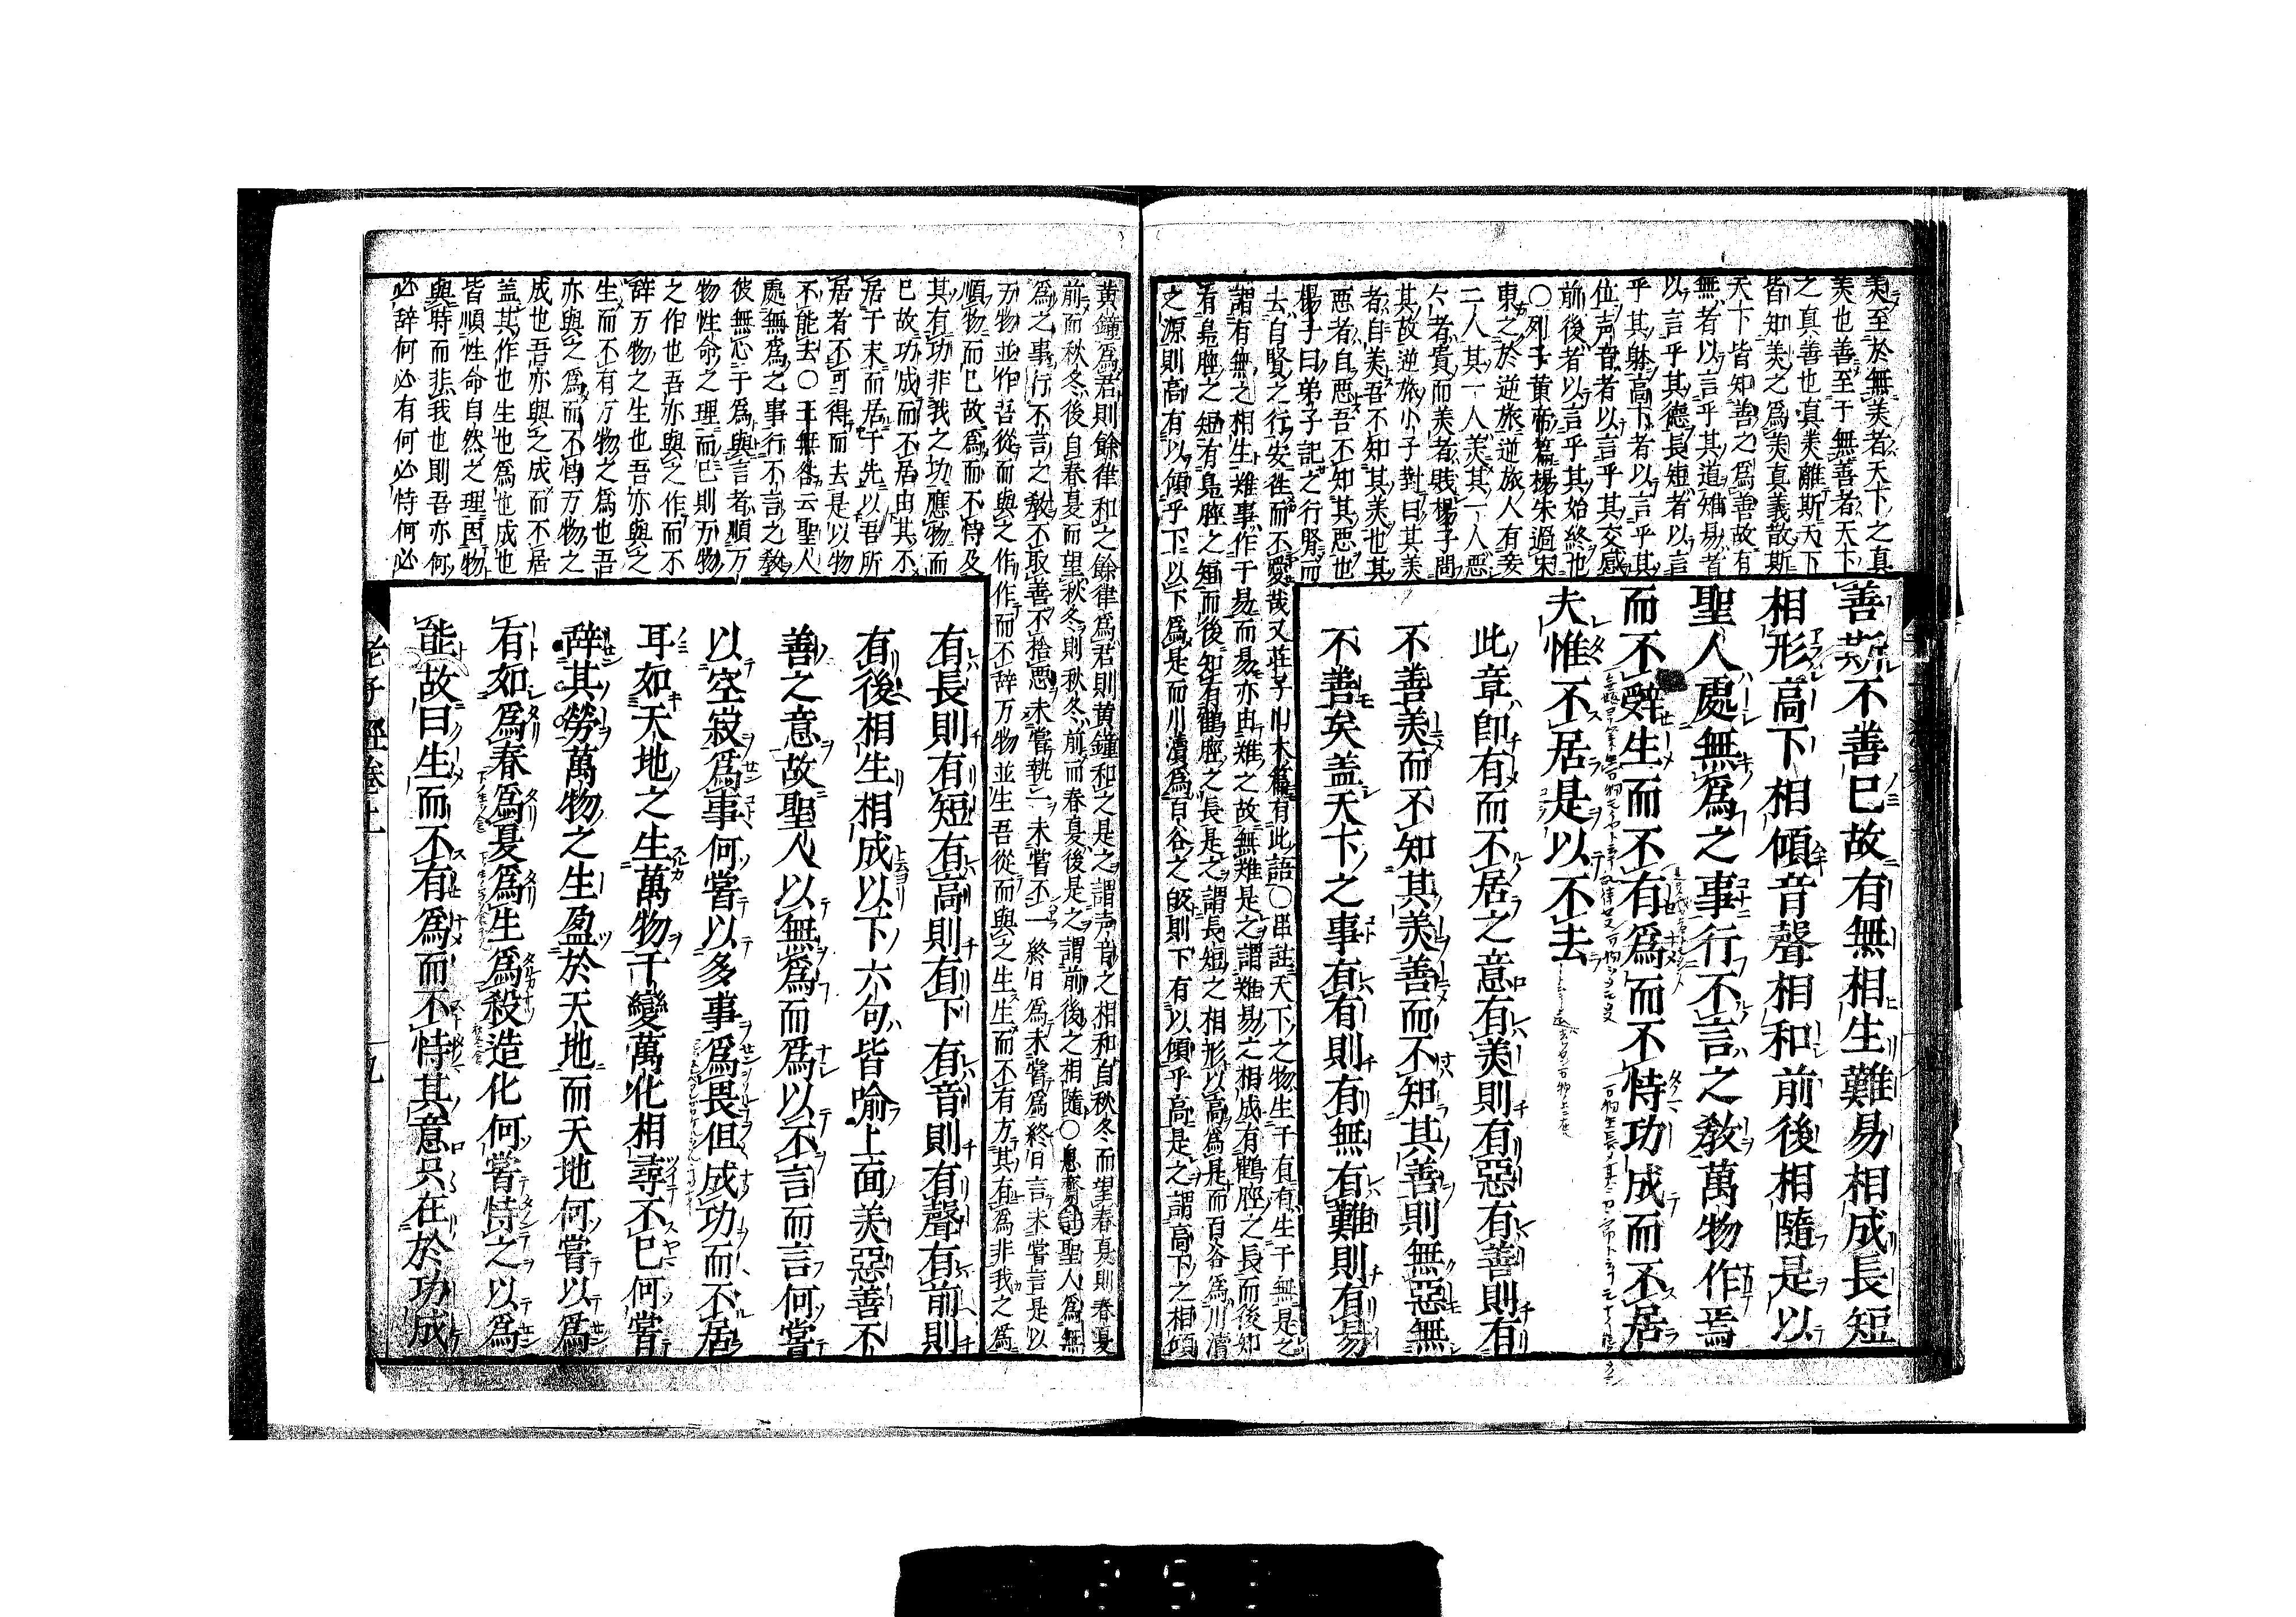 善斯不善已故有無相生難易相成長短
相形高下相傾音聲相和前後相隨是以
聖人處無爲之事行不言之敎萬物作焉
而不辭生而不有爲而不恃功成而不居
夫惟不居是以不去
此章卽有而不居之意有美則有惡有善則有
不善美而不知其美善而不知其善則無惡無
不善矣盖天下之事有有則有無有難則有易
美至於無美者天下之真
美也善至于無善者天下
之真善也真美離斯天下
皆知美之爲美真義散斯
天下皆知善之爲善故有
無者以言乎其道難易者
以言乎其德長短者以言
乎其躰高下者以言乎其
位声音者以言乎其交感
前後者以言乎其始終也
○列子黄帝篇楊朱過宋
東之於逆旅逆旅人有妾
二人其一人美其一人惡
惡者貴而美者賎楊子問
其故逆旅小子對曰其美
者自美吾不知其美也其
惡者自惡吾不知其惡也
楊子曰弟子記之行賢而
去自賢之行安往而不愛哉又莊子山木篇有此語○串註天下之物生于有有生于無是之
謂有無之相生難事作于易而易亦由難之故無難是之謂難易之相成有鶴脛之長而後知
有鳬脛之短有鳬脛之短而後知有鶴脛之長是之謂長短之相形以高爲是而百谷爲川瀆
之源則高有以傾乎下以下爲是而川瀆爲百谷之皈則下有以傾乎高是之謂高下之相傾
黄鐘爲君則餘律和之餘律爲君則黄鐘和之是之謂声音之相和自秋冬而望春夏則春夏
前而秋冬後自春夏而望秋冬則秋冬前而春夏後是之謂前後之相隨○息齋註聖人爲無
爲之事行不言之敎不取善不捨惡未嘗執一未嘗丕一終日爲未嘗爲終日言未嘗言是以
万物並作吾從而與之作作而不辞万物並生吾從而與之生生而不有方其有爲非我之爲
順物而已故爲而不恃及
其有功非我之功應物而
已故功成而不居由其不
居于末而居于先以吾所
居者不可得而去是以物
不能去○王無咎云聖人
處無爲之事行不言之敎
彼無心于爲與言者順万
物性命之理而已則万物
之作也吾亦與之作而不
辞万物之生也吾亦與之
生而不有万物之爲也吾
亦與之爲而不恃万物之
成也吾亦與之成而不居
盖其作也生也爲也成也
皆順性命自然之理因物
與時而非我也則吾亦何
必辞何必有何必恃何必
有長則有短有高則有下有音則有聲有前則
有後相生相成以下六句皆喩上面美惡善不
善之意故聖人以無爲而爲以不言而言何嘗
以空寂爲事何嘗以多事爲畏但成功而不居
耳如天地之生萬物千變萬化相尋不已何嘗
辞其勞萬物之生盈於天地而天地何嘗以爲
有如爲春爲夏爲生爲殺造化何嘗恃之以爲
能故曰生而不有爲而不恃其意只在於功成
老子經卷上
九